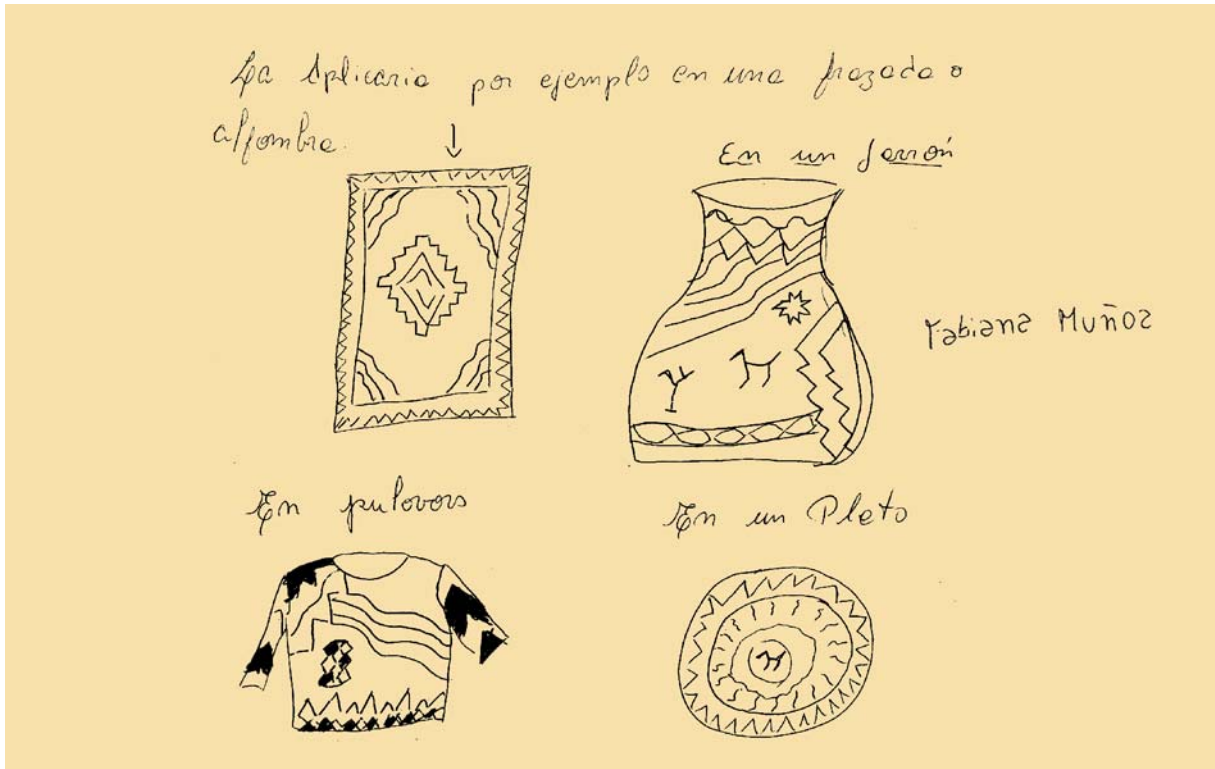 La Aplicaria por ejemplo en una frazada o
alfombra.
En un Jarrón
Fabiana Muñoz
En pulovors
En un Plato